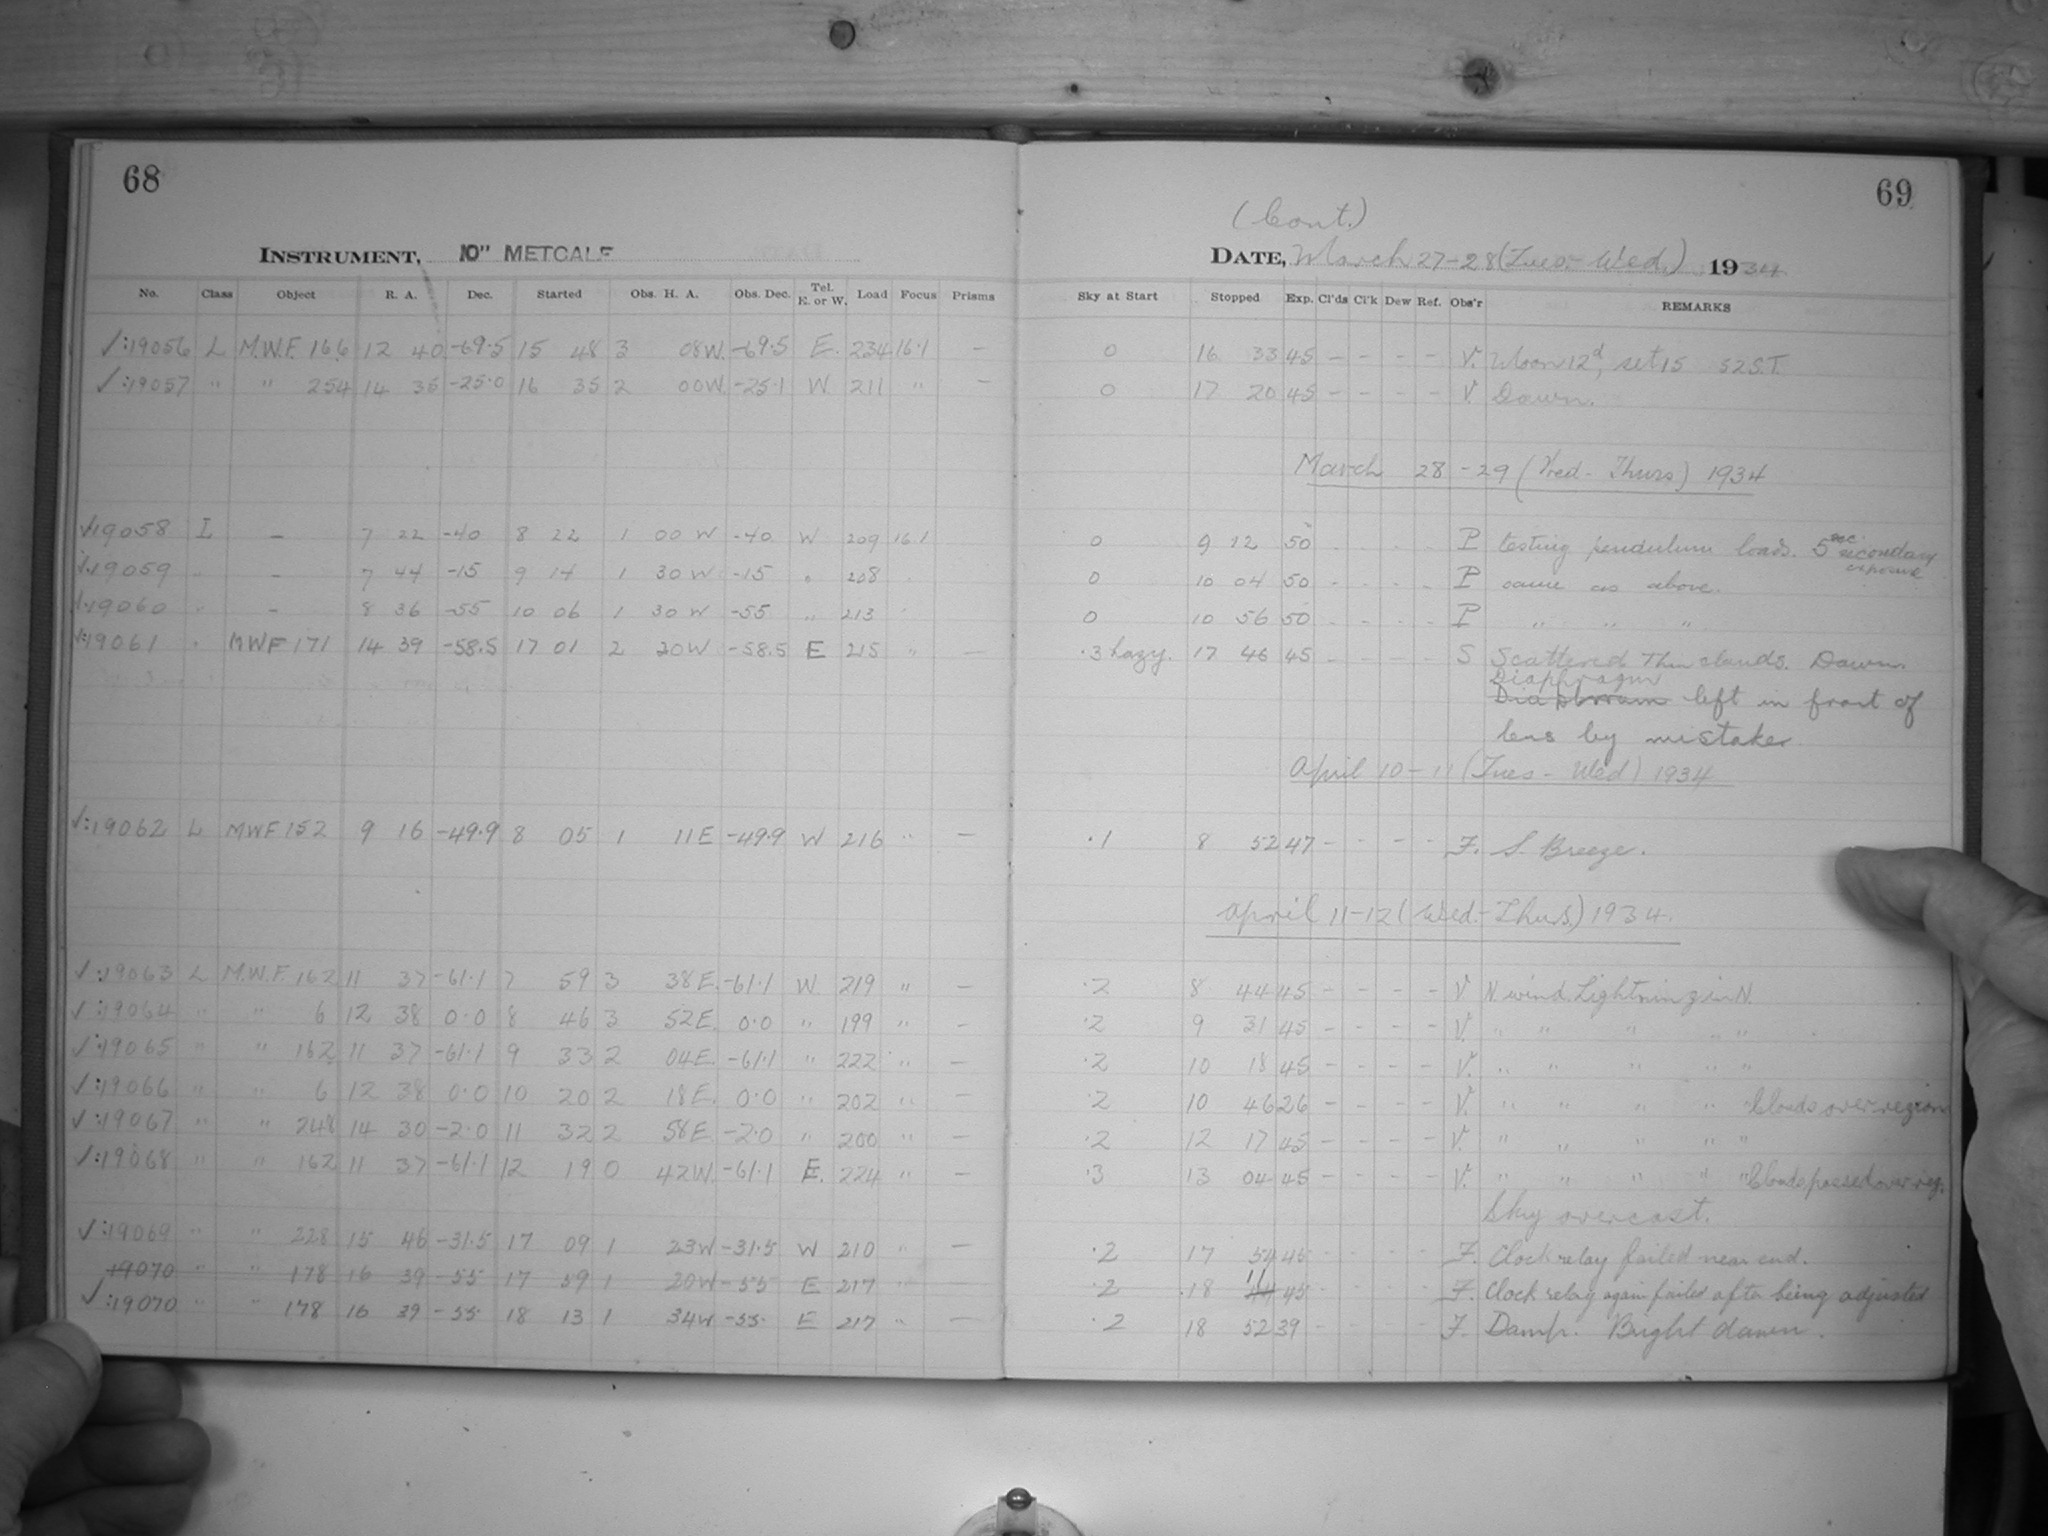 68
INSTRUMENT, 10" METCALF
No. Class Object R. A. Dec. Started Obs. H. A. Obs. Dec. Tel. E. or W. Load Focus Prisms
√:19056 L M.W.F. 166 12 40 -69.5 15 48 3 08W. -69.5 E. 234 16.1 —
√:19057 " " 254 14 35 -25.0 16 35 2 00W. -25.1 W. 211 " —
√19058 L — 7 22 -40 8 22 1 00 W -40 W 209 16.1
√19059 " — 7 44 -15 9 14 1 30 W -15 " 208 "
√19060 " — 8 36 -55 10 06 1 30 W -55 " 213 "
√:19061 " MWF 171 14 39 -58.5 17 01 2 20W -58.5 E 215 " —
√:19062 L MWF 152 9 16 -49.9 8 05 1 11E -49.9 W 216 " —
√:19063 L M.W.F. 162 11 37 -61.1 7 59 3 38E. -61.1 W. 219 " —
√:19064 " " 6 12 38 0.0 8 46 3 52E. 0.0 " 199 " —
√:19065 " " 162 11 37 -61.1 9 33 2 04E. -61.1 " 222 " —
√:19066 " " 6 12 38 0.0 10 20 2 18E. 0.0 " 202 " —
√:19067 " " 248 14 30 -2.0 11 32 2 58E. -2.0 " 200 " —
√:19068 " " 162 11 37 -61.1 12 19 0 42W. -61.1 E. 224 " —
√:19069 " " 228 15 46 -31.5 17 09 1 23W -31.5 W 210 " —
19070 " " 178 16 39 -55 17 59 1 20W -55 E 217 " —
√:19070 " " 178 16 39 -55. 18 13 1 34W -55. E 217 " —
69
(Cont.)
DATE, March 27-28 (Tues.-Wed.) 1934
Sky at Start Stopped Exp. Cl'ds Cl'k Dew Ref. Obs'r REMARKS
0 16 33 45 - - - - V. Moon 12d, set 15 52 S.T.
0 17 20 45 - - - - V. Dawn.
March 28-29 (Wed-Thurs) 1934
0 9 12 50 - - - - P testing pendulum loads. 5 sec. secondary exposure
0 10 04 50 - - - - P same as above.
0 10 56 50 - - - - P " " "
.3 hazy. 17 46 45 - - - - S Scattered Thin clouds. Dawn.
Diaphragm
left in front of
lens by mistake.
April 10-11 (Tues-Wed) 1934
.1 8 52 47 - - - - F. S. Breeze.
April 11-12 (Wed.-Thurs.) 1934.
.2 8 44 45 - - - - V N wind. Lightning in N.
.2 9 31 45 - - - - V. " " " " "
.2 10 18 45 - - - - V. " " " " "
.2 10 46 26 - - - - V. " " " " " Clouds over region
.2 12 17 45 - - - - V. " " " " "
.3 13 04 45 - - - - V. " " " " " Clouds passed over reg.
Sky overcast.
.2 17 54 45 - - - - F. Clock relay failed near end.
.2 18 11 45 - - - - F. Clock relay again failed after being adjusted
.2 18 52 39 - - - - F. Damp. Bright dawn.